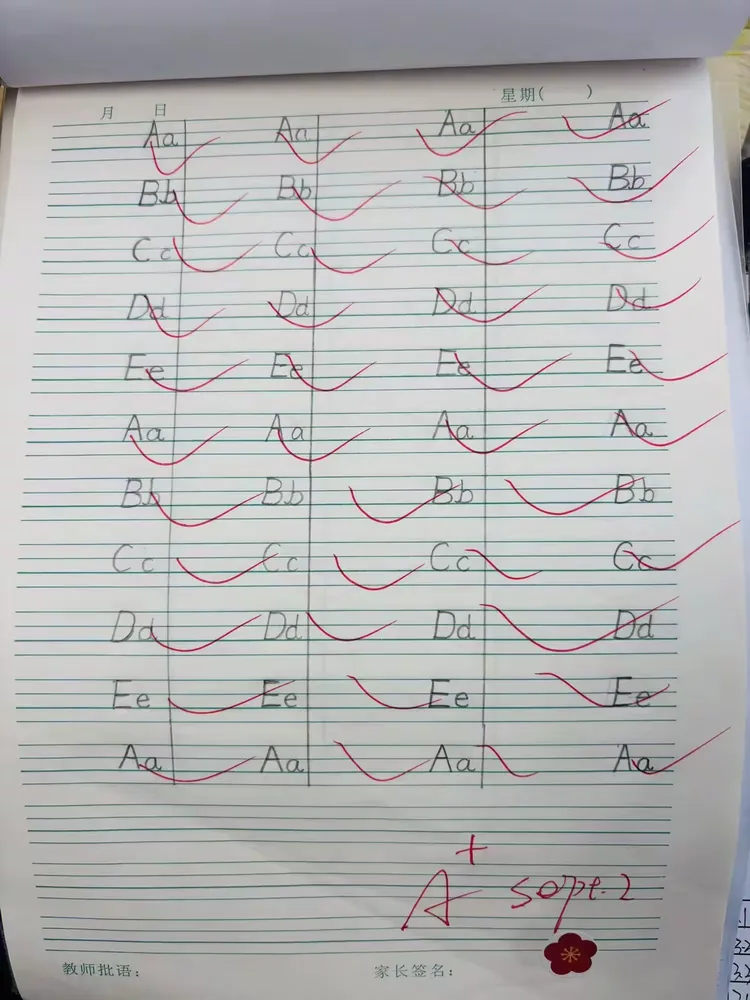 月 日 星期( )
Aa Aa Aa Aa
Bb Bb Bb Bb
Cc Cc Cc Cc
Dd Dd Dd Dd
Ee Ee Ee Ee
Aa Aa Aa Aa
Bb Bb Bb Bb
Cc Cc Cc Cc
Dd Dd Dd Dd
Ee Ee Ee Ee
Aa Aa Aa Aa
A+ sept. 2
教师批语: 家长签名: